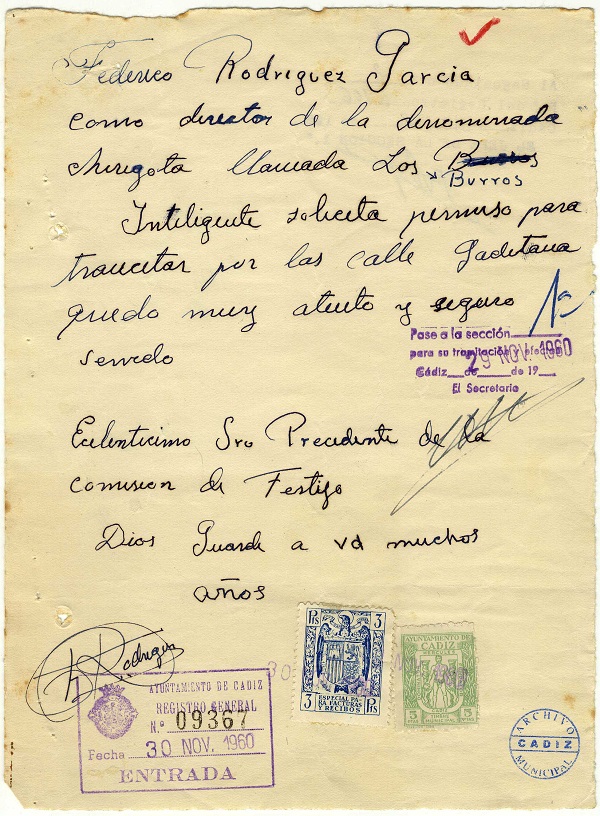 Federico Rodriguez Garcia
como director de la denominada
chirigota llamada Los Burros
Burros
Inteligente solicita permiso para
trancitar por las calle gaditana
quedo muy atento y seguro
servido
1ª
Pase a la sección
para su tramitación y efectos
29 NOV. 1960
Cádiz de de 19
El Secretario
Ecelenticimo Sro Precidente de la
comision de Festijo
Dios Guarde a vd muchos
años
F Rodriguez
AYUNTAMIENTO DE CADIZ
REGISTRO GENERAL
N.º 09367
Fecha 30 NOV. 1960
ENTRADA
3 Pts 3
ESPECIAL PARA FACTURAS Y RECIBOS
3 Pts
AYUNTAMIENTO DE
CADIZ
5 5
ARCHIVO
CADIZ
MUNICIPAL